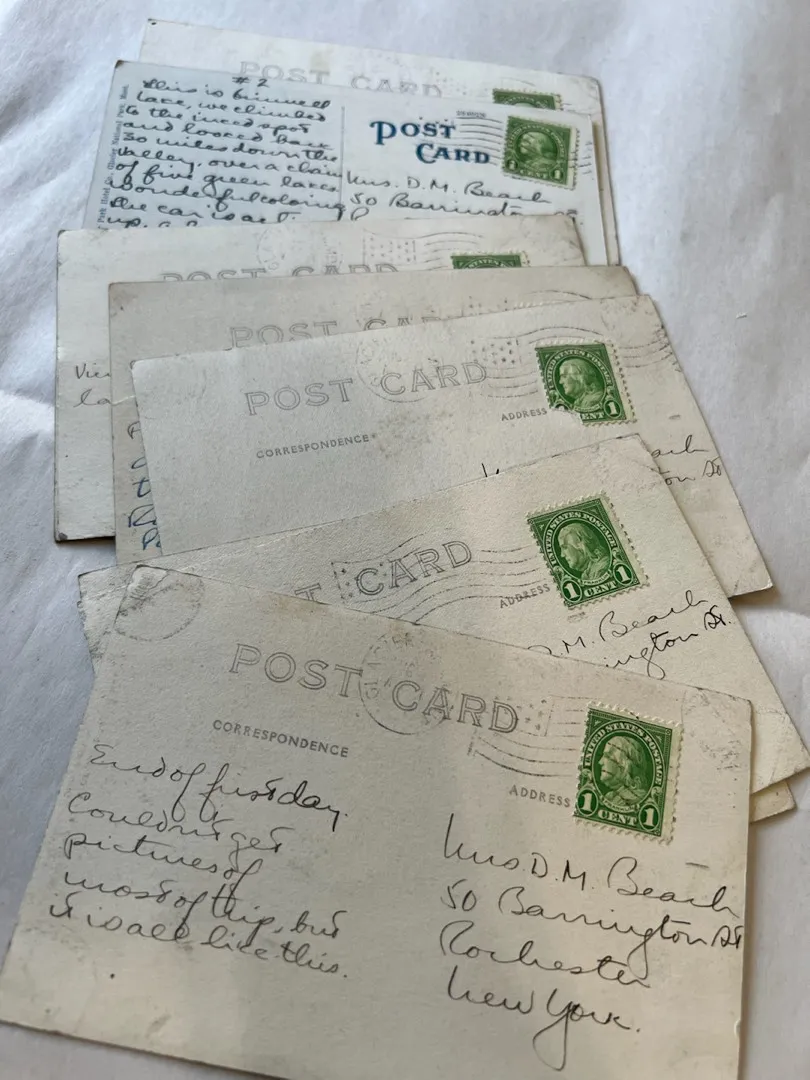 POST CARD
#2
This is Grinnell
Lake, we climbed
to the inced spot
and looked back
30 miles down the
valley, over a chain
of five green lakes
wonderful coloring
the car is at
up
Park
National Park
POST
CARD
Mrs. D.M. Beach
50 Barrington
POST CARD
POST CARD
POST CARD
CORRESPONDENCE
ADDRESS
UNITED STATES POSTAGE
1 CENT
CARD
ADDRESS
UNITED STATES POSTAGE
1 CENT 1
D.M. Beach
ington St.
POST CARD
CORRESPONDENCE
ADDRESS
UNITED STATES POSTAGE
1 CENT 1
End of first day.
Couldn't get
pictures of
most of trip, but
it is all like this.
Mrs D.M. Beach
50 Barrington St
Rochester
New York.